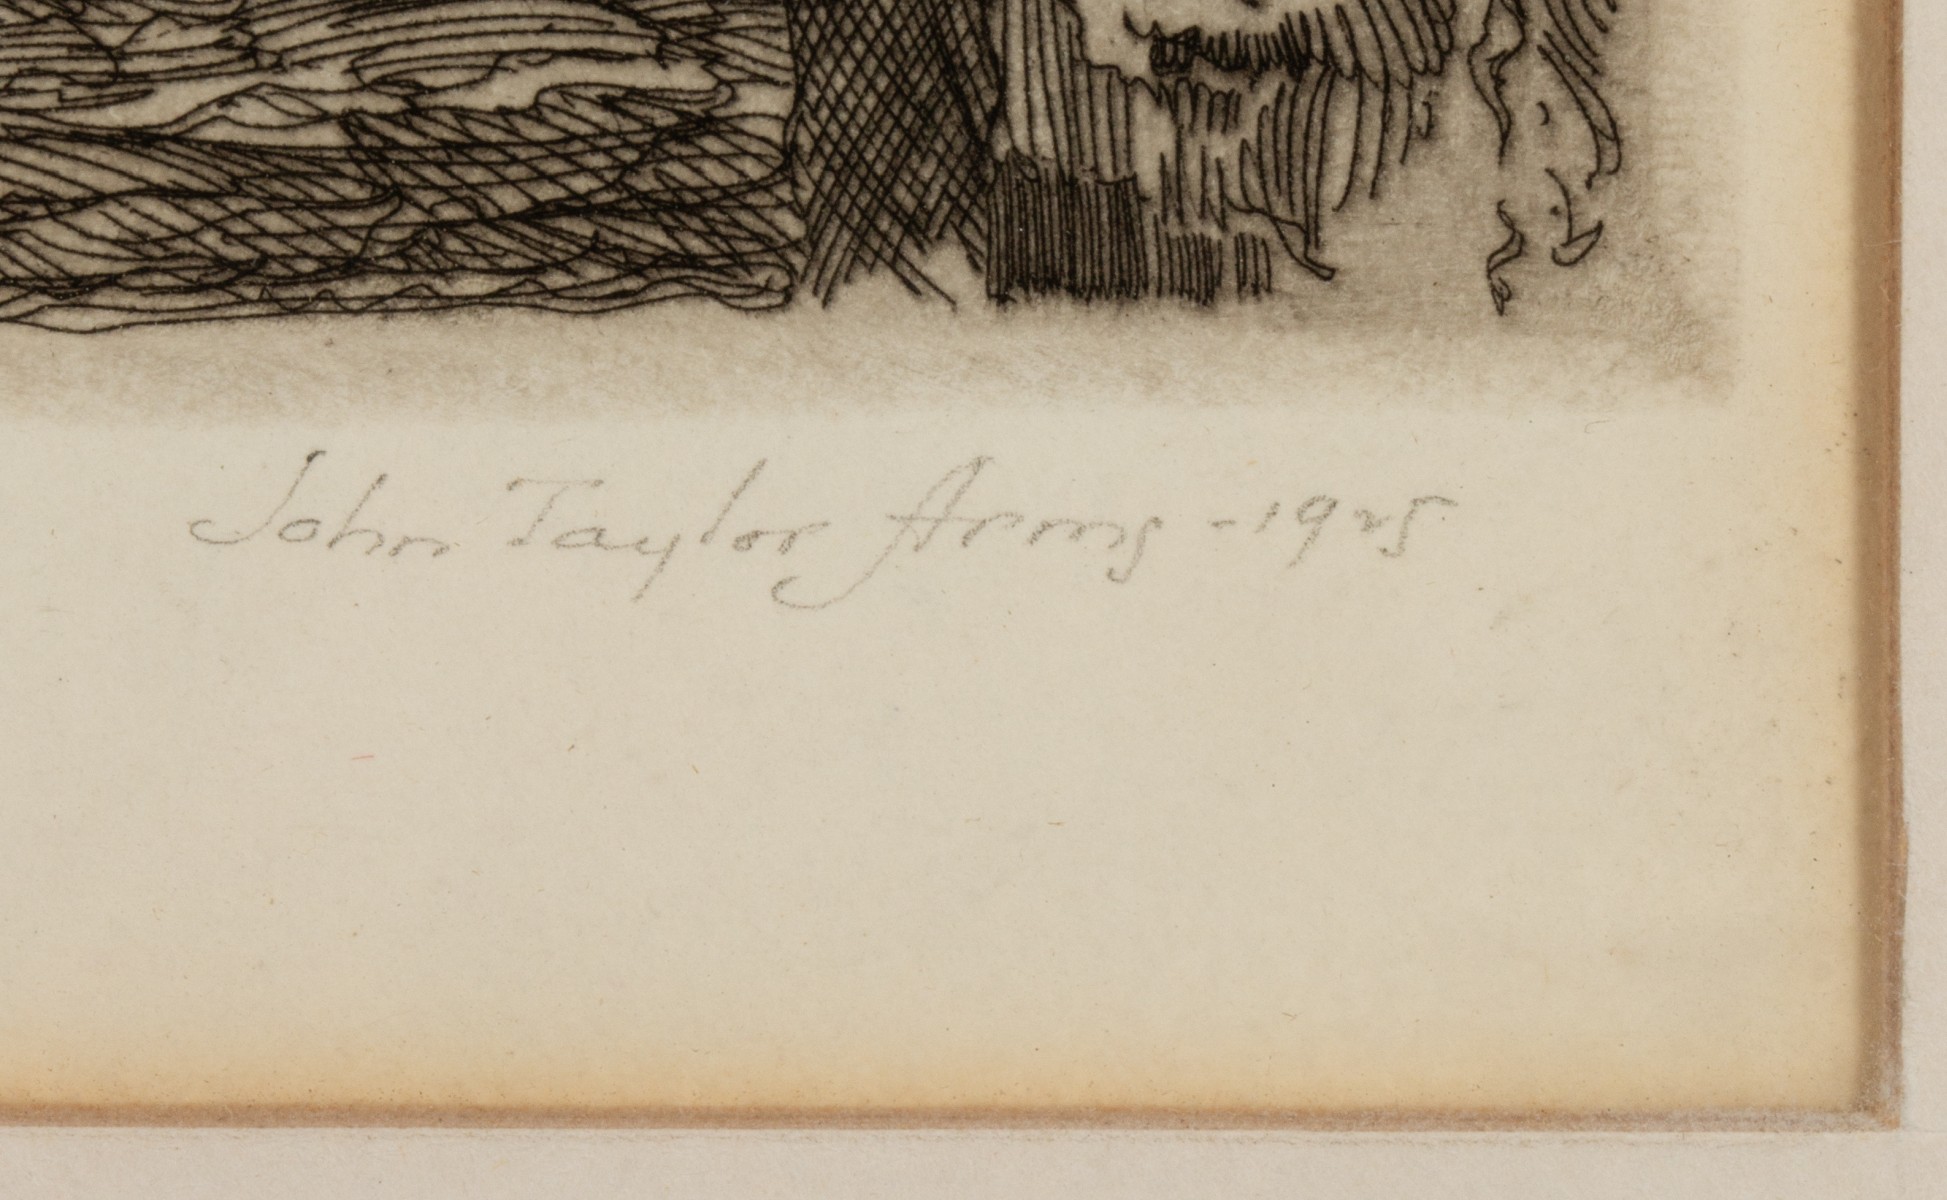 John Taylor Arms - 1925